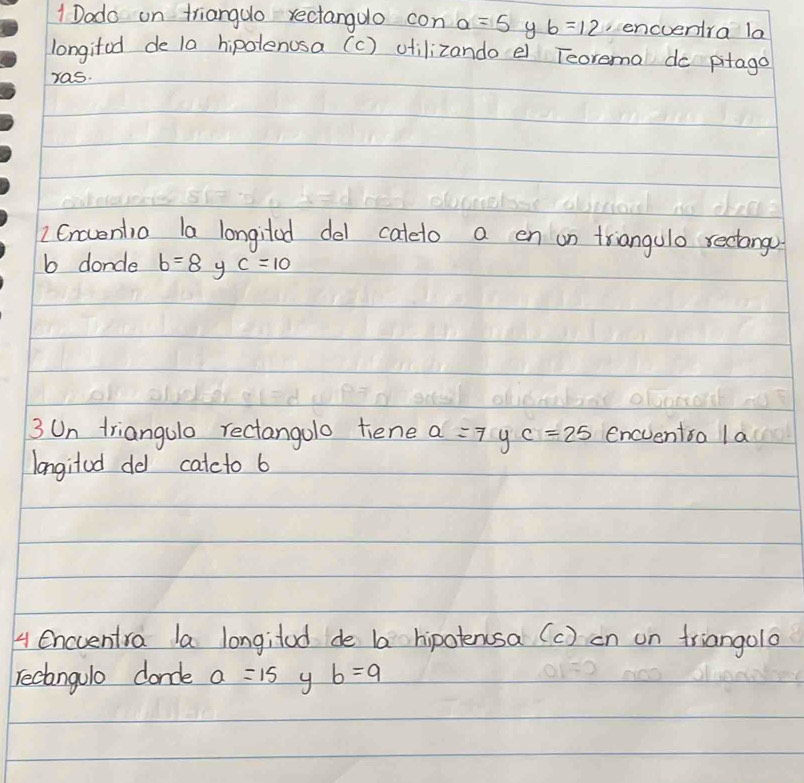 1 Dado un triangulo rectangulo con a = 5 y b = 12, encuentra la
longitud de la hipotenusa (c) utilizando el Teorema de pitago
ras.
2 Encuentra la longitud del cateto a en un triangulo rectangu-
lo donde b = 8 y c = 10
3 Un triangulo rectangulo tiene a = 7 y c = 25 Encuentra la
longitud del cateto b
4 Encuentra la longitud de la hipotenusa (c) en un triangulo
rectangulo donde a = 15 y b = 9